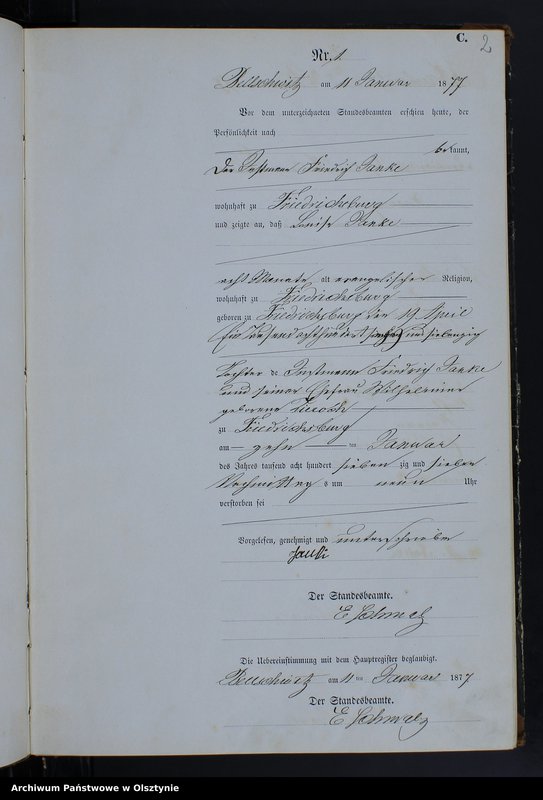 C.
2
Nr. 1.
Bellschwitz am 11 Januar 1877
Vor dem unterzeichneten Standesbeamten erschien heute, der
Persönlichkeit nach
bekannt,
Der Instmann Friedrich Janke
wohnhaft zu Friedrichsburg
und zeigte an, daß Louise Janke
acht Monate alt evangelischer Religion,
wohnhaft zu Friedrichsburg
geboren zu Friedrichsburg den 19 April
Ein Tausendachthundert und siebenzig
Tochter de Instmann Friedrich Janke
und seiner Ehefrau Wilhelmine
geborene
zu Friedrichsburg
am zehn ten Januar
des Jahres tausend acht hundert sieben zig und sieben
Nachmittag s um neun Uhr
verstorben sei
Vorgelesen, genehmigt und unterschrieben
Janke
Der Standesbeamte.
E Schmelz
Die Uebereinstimmung mit dem Hauptregister beglaubigt.
Bellschwitz am 11 ten Januar 1877
Der Standesbeamte.
E Schmelz
Archiwum Państwowe w Olsztynie